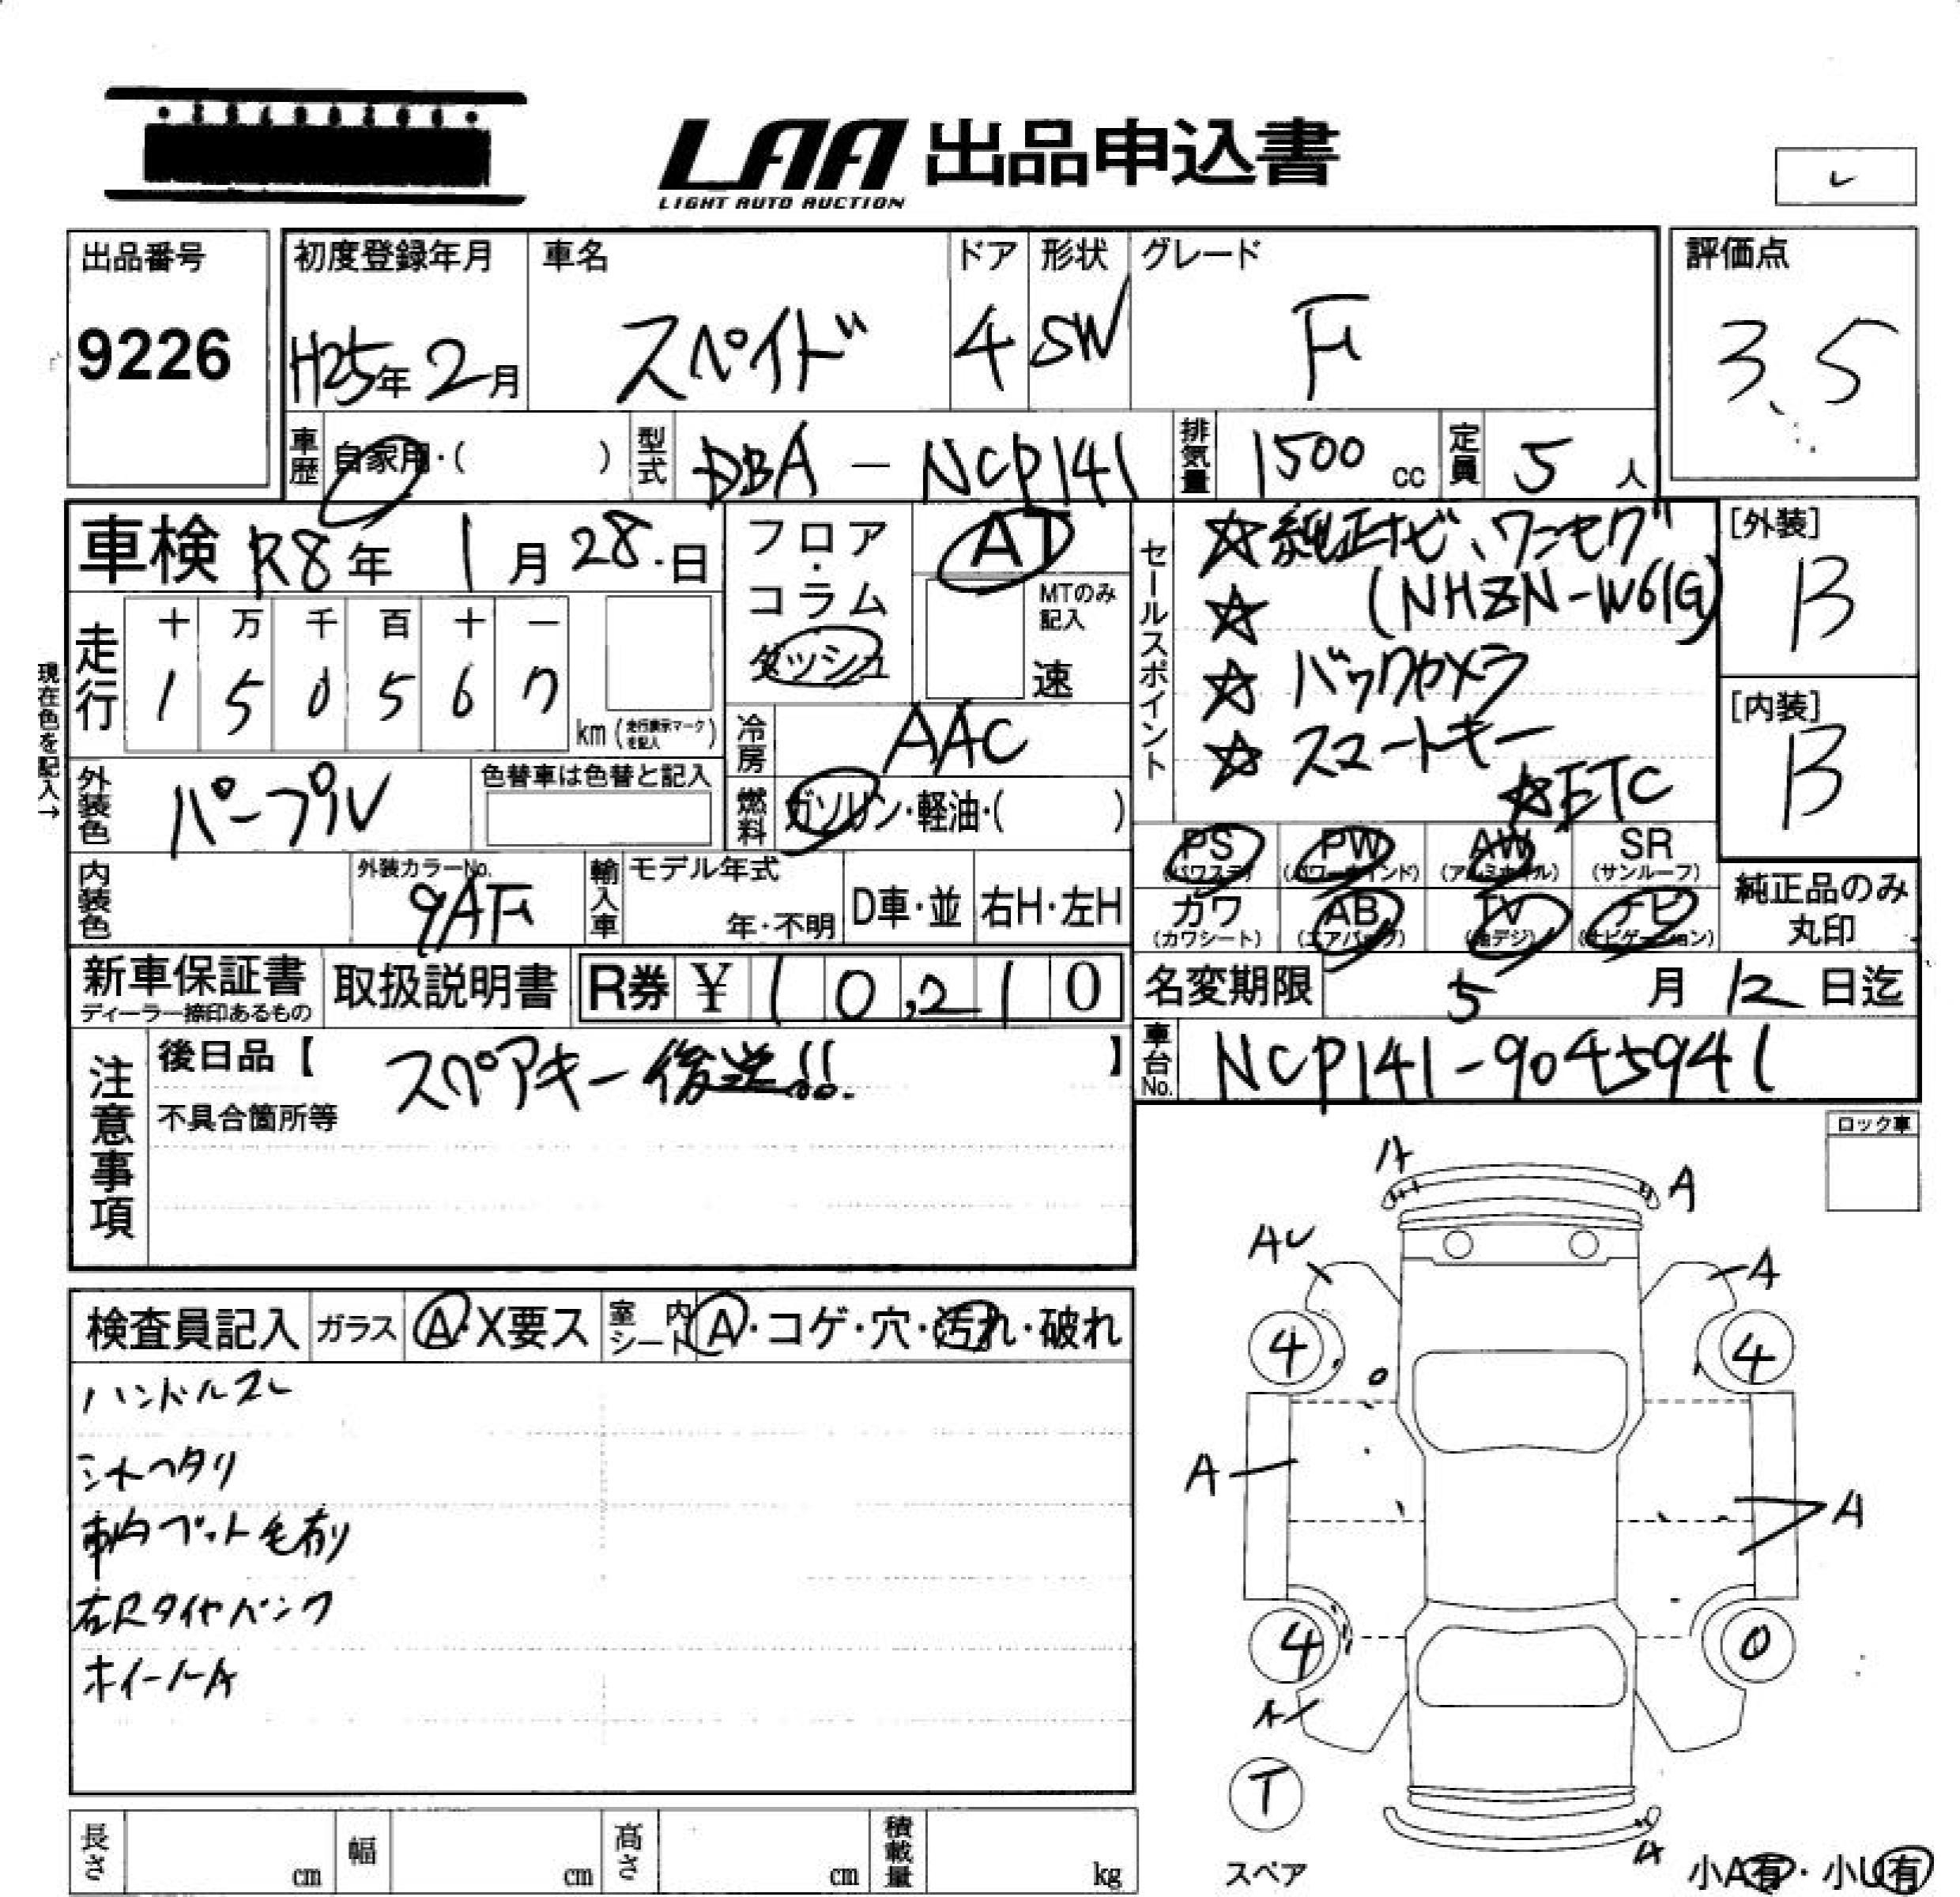 LAA 出品申込書
LIGHT AUTO AUCTION
出品番号 初度登録年月 車名 ドア 形状 グレード 評価点
9226 H25年 2月 スペイド 4 SW F 3.5
車歴 自家用・( ) 型式 DBA-NCP141 排気量 1500 cc 定員 5 人
車検 R8年 1月 28日
フロア・コラム ダッシュ
AT
MTのみ記入
速
セールスポイント
☆純正ナビ、ワンセグ
☆ (NHZN-W61G)
☆ バックカメラ
☆ スマートキー
☆ETC
[外装]
B
[内装]
B
現在色を記入→
走行 十 万 千 百 十 一
1 5 0 5 6 7 km (走行表示マークを記入)
冷房 AAC
外装色 パープル 色替車は色替と記入
燃料 ガソリン・軽油・( )
PS (パワステ) PW (パワーウインド) AW (アルミホイル) SR (サンルーフ)
カワ (カワシート) AB (エアバック) TV (地デジ) ナビ (ナビゲーション)
純正品のみ丸印
内装色 外装カラーNo. 9AF 輸入車 モデル年式 年・不明 D車・並 右H・左H
新車保証書 ディーラー捺印あるもの 取扱説明書 R券 ¥ 10,210
名変期限 5月 12日迄
車台No. NCP141-9045941
注意事項
後日品【 スペアキー後送!! 】
不具合箇所等
ロック車
検査員記入 ガラス A・X要ス 室内シート A・コゲ・穴・汚れ・破れ
ハンドルスレ
シートヘタリ
車内ペット毛有り
右Rタイヤパンク
ホイールA
A
A
AU
A
4
4
A
A
4
0
T
スペア
A
小A有・小U有
長さ cm 幅 cm 高さ cm 積載量 kg